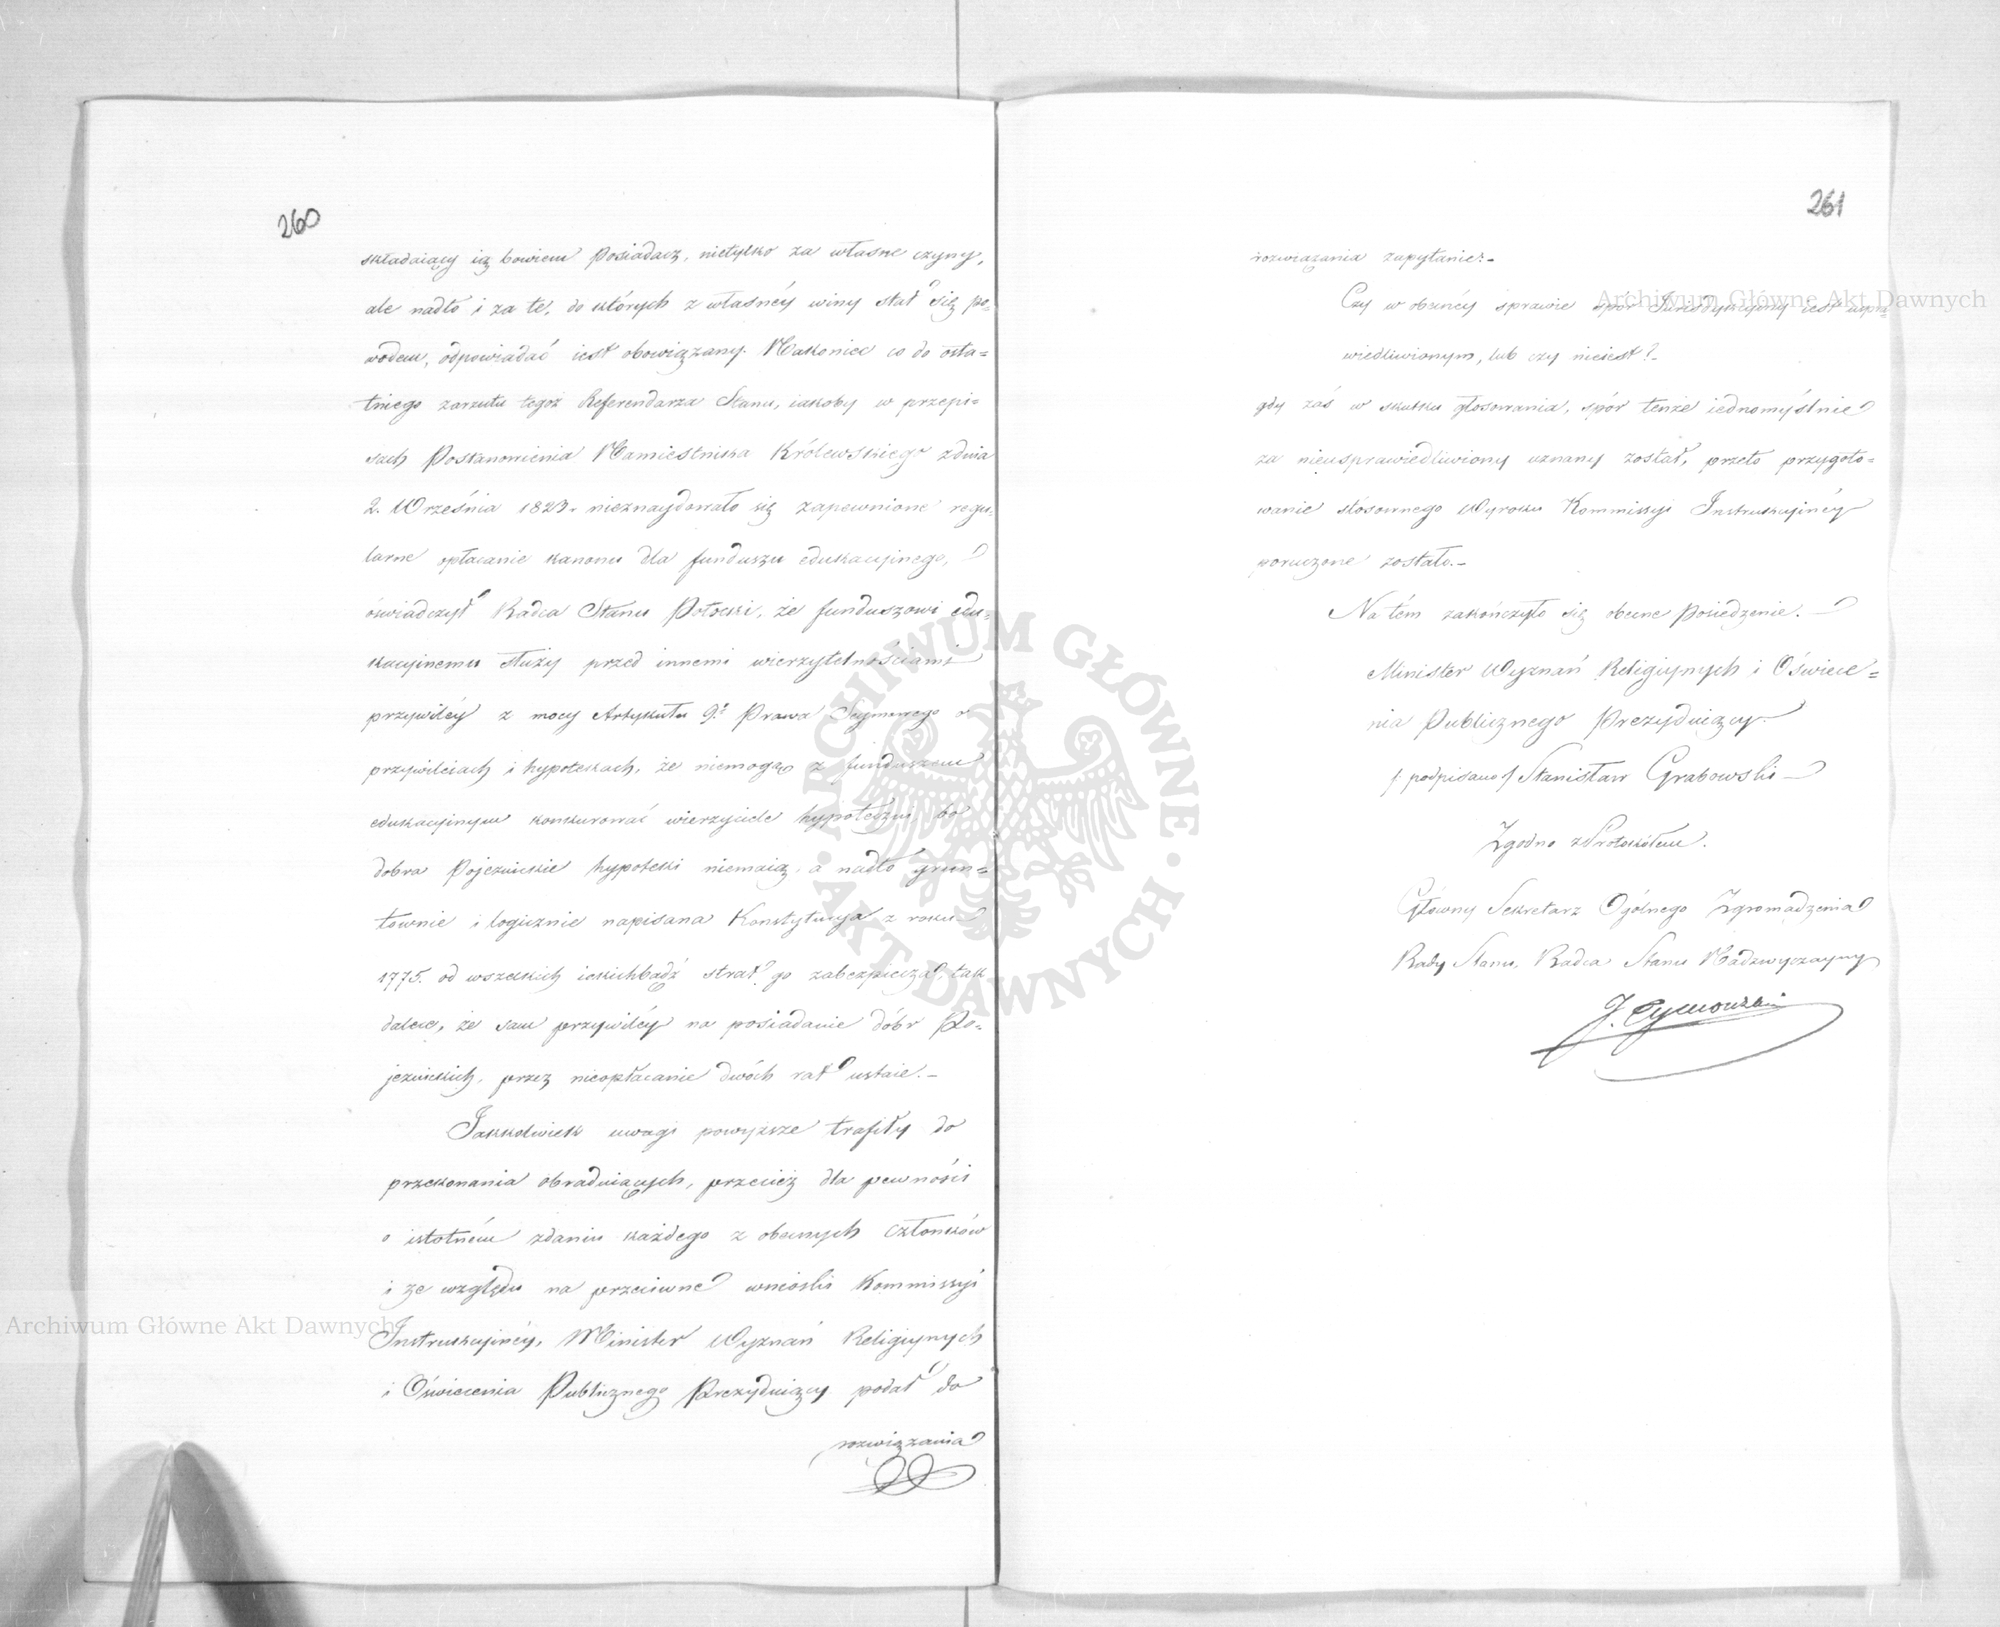 260
składaiący ią bowiem Posiadacz, nietylko za własne czyny,
ale nadto i za te, do których z własnéy winy stał się po-
wodem, odpowiadać iest obowiązany. Nakoniec co do osta=
tniego zarzutu tegoż Referendarza Stanu, iakoby w przepi-
sach Postanowienia Namiestnika Królewskiego z dnia
2. Września 1823. nieznaydowało się zapewnione regu-
larne opłacanie kanonu dla funduszu edukacyinego,
oświadczył Radca Stanu Potocki, że funduszowi edu-
kacyinemu służy przed innemi wierzytelnościami
przywiléy z mocy Artykułu 9º Prawa Seymowego o
przywileiach i hypotekach, że niemogą z funduszem
edukacyinym konkurować wierzyciele hypoteczni, bo
dobra Pojezuickie hypoteki niemaią, a nadto grun=
townie i logicznie napisana Konstytucya z roku
1775. od wszelkich iakichbądź strat go zabezpiecza, tak
dalece, że sam przywiléy na posiadanie dóbr Po-
jezuickich, przez nieopłacanie dwóch rat ustaie.-
Jakkolwiek uwagi powyższe trafiły do
przekonania obraduiących, przecież dla pewności
o istotném zdaniu każdego z obecnych członków
i ze względu na przeciwne wnioski Kommissyi
Instrukcyinéy, Minister Wyznań Religiynych
i Oświecenia Publicznego Prezyduiący podał do
rozwiązania
261
rozwiązania zapytanie:-
Czy w obecnéy sprawie spór Jurisdykcyiny iest uspra-
wiedliwionym, lub czy nieiest?-
gdy zaś w skutku głosowania, spór tenże iednomyślnie
za nieusprawiedliwiony uznany został, przeto przygoto=
wanie stósownego Wyroku Kommissyi Instrukcyinéy
poruczone zostało.-
Na tém zakończyło się obecne Posiedzenie.-
Minister Wyznań Religiynych i Oświece=
nia Publicznego Prezyduiący.
/: podpisano / Stanisław Grabowski
Zgodno z Protokółem.
Główny Sekretarz Ogólnego Zgromadzenia
Rady Stanu, Radca Stanu Nadzwyczayny
J. Tymowski
Archiwum Główne Akt Dawnych
Archiwum Główne Akt Dawnych
ARCHIWUM GŁÓWNE
AKT DAWNYCH